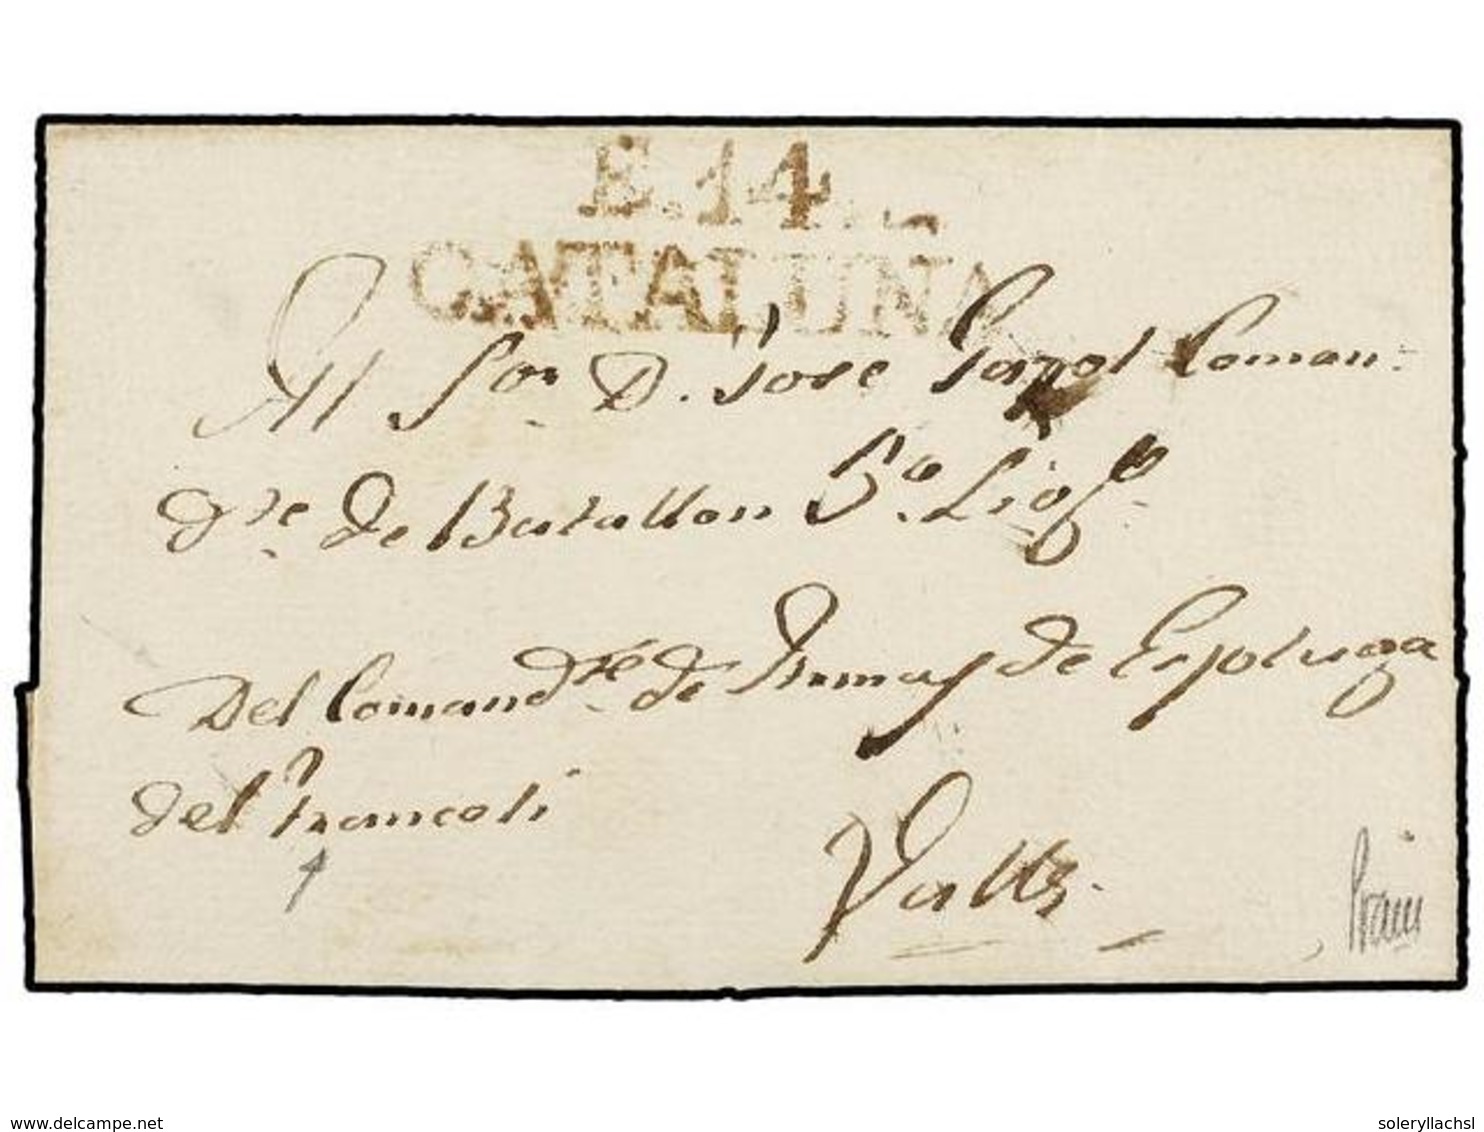 E.14.
CATALUÑA
Al Sor D. Jose Gazol Coman=
dte de Batallon 5o Ligo
Del Comandte de Armas de Espluga
del Francoli
Valls.
www.delcampe.net
soleryllachsl